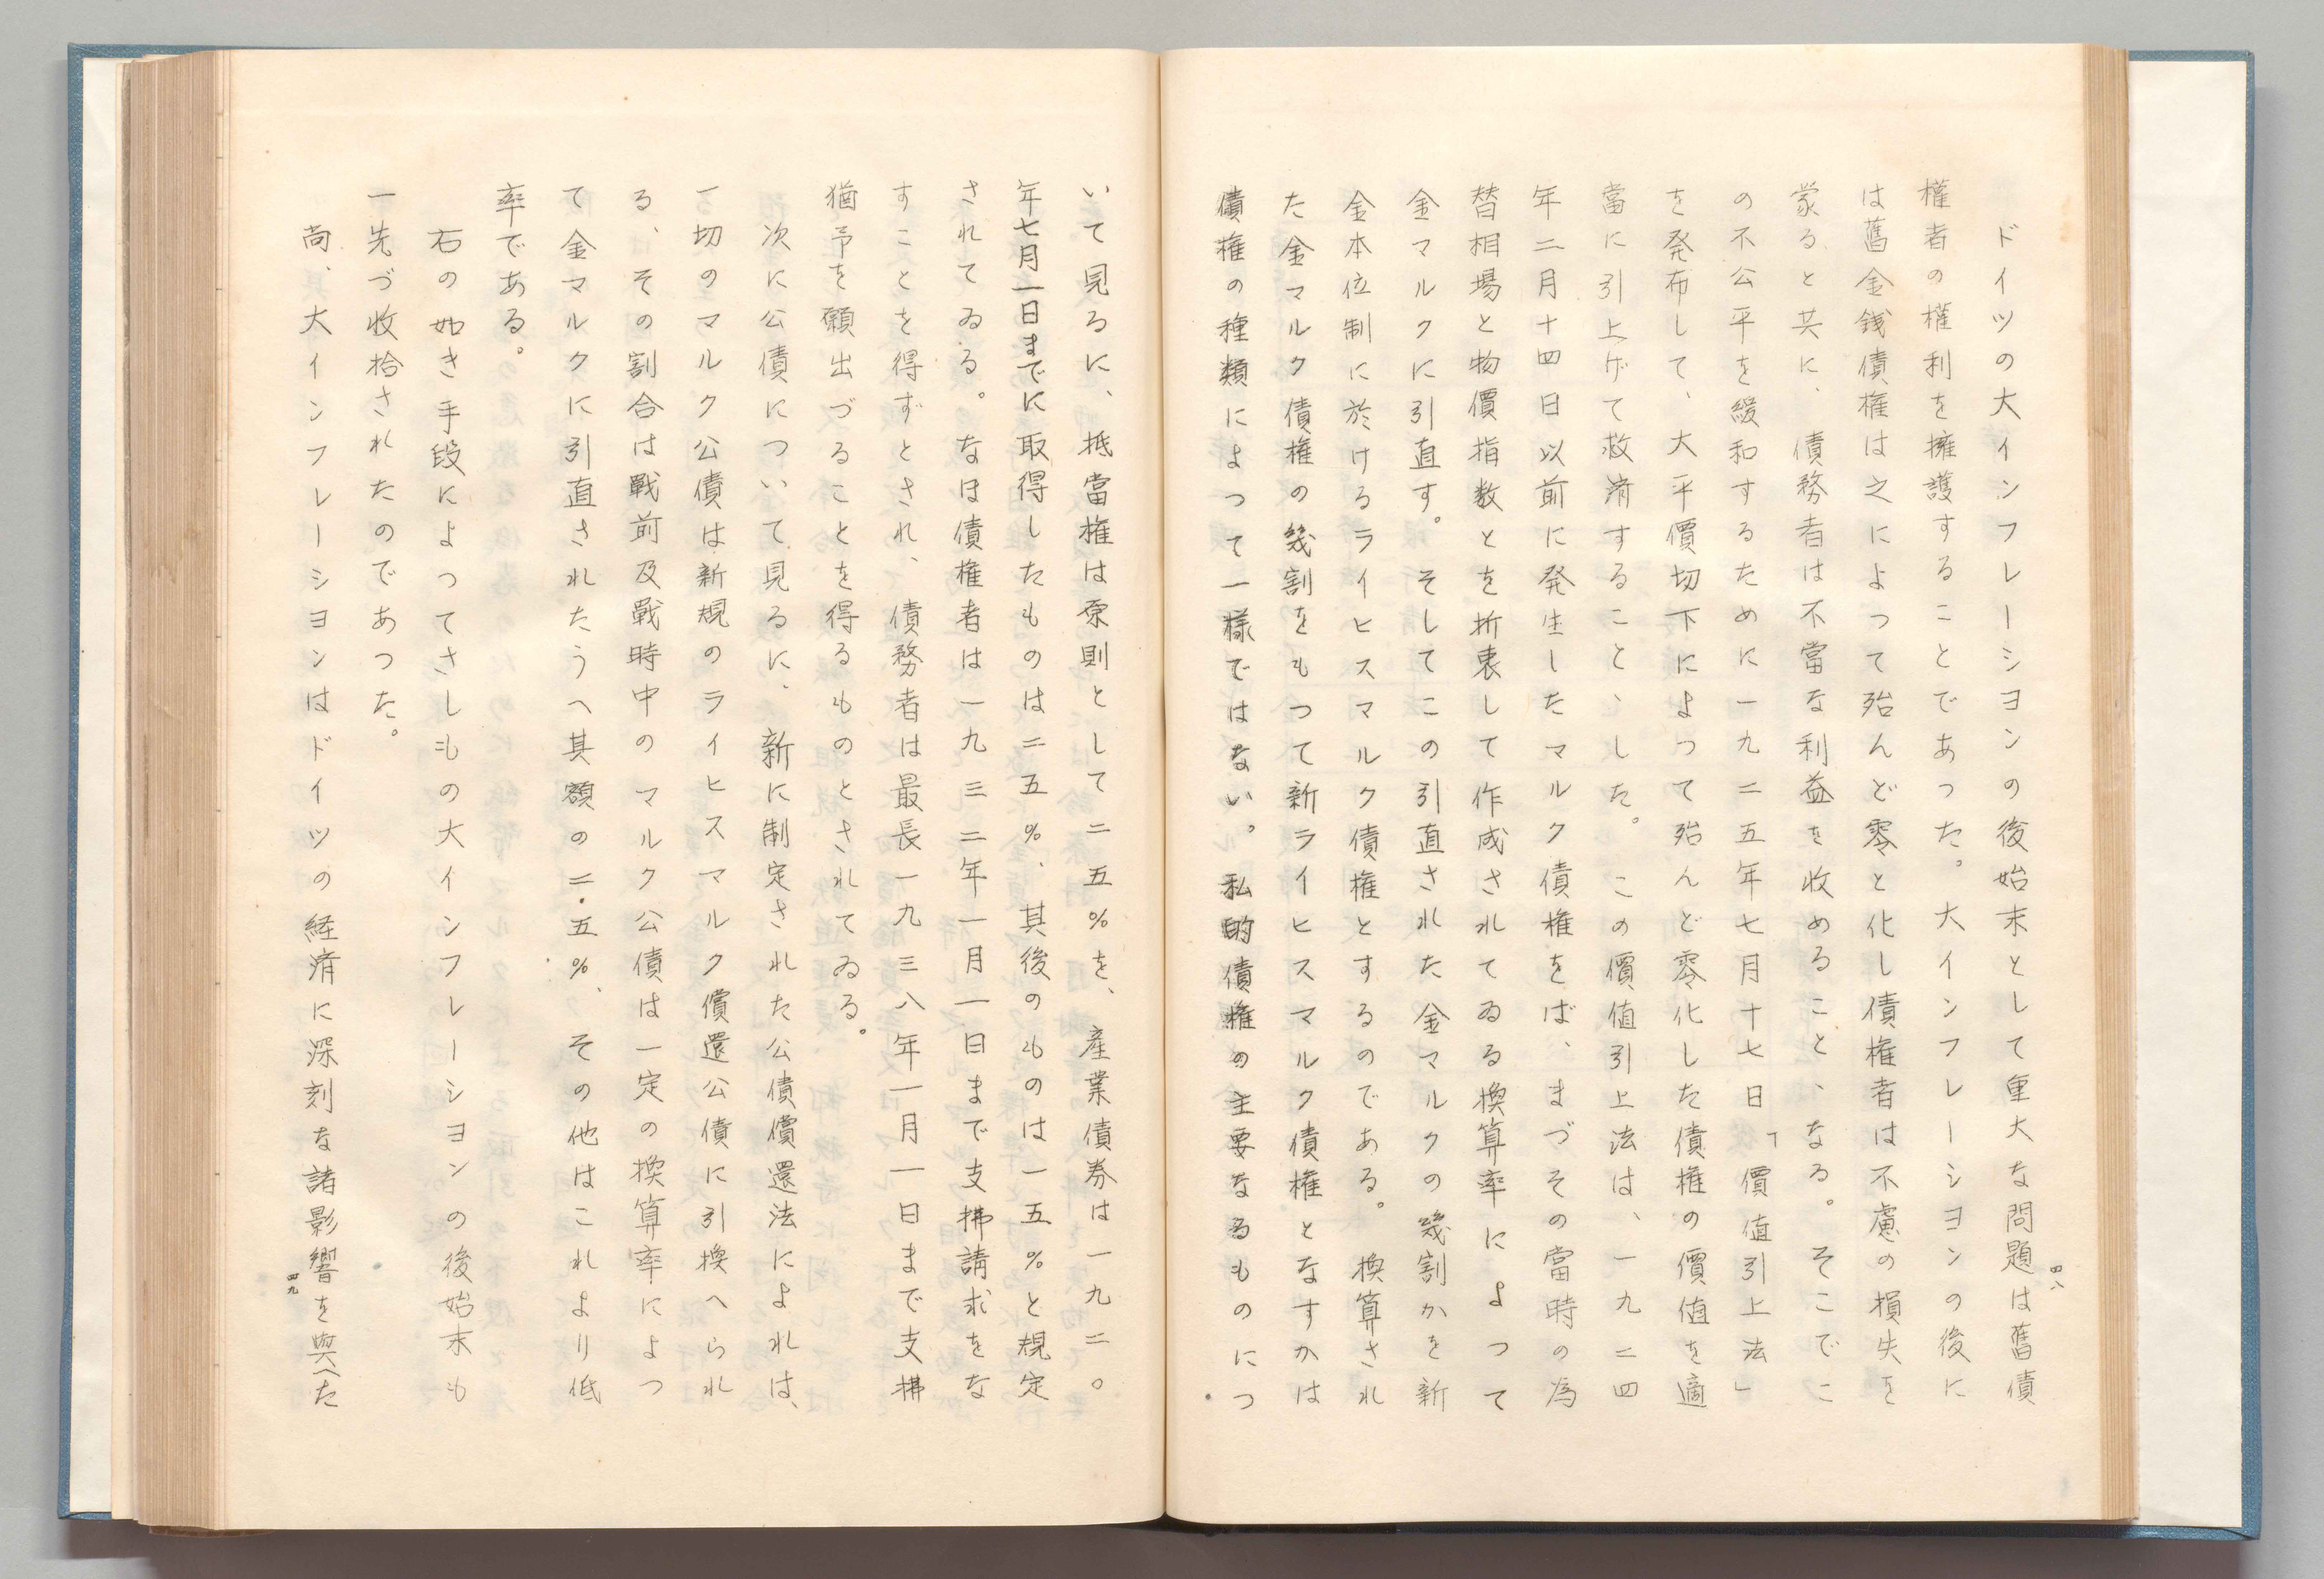 ドイツの大インフレーシヨンの後始末として重大な問題は舊債
權者の權利を擁護することであつた。大インフレーシヨンの後に
は舊金銭債権は之によつて殆んど零と化し債権者は不慮の損失を
蒙ると共に、債務者は不當な利益を收めること、なる。そこでこ
の不公平を緩和するために一九二五年七月十七日「價値引上法」
を発布して、大平價切下によつて殆んど零化した債権の價値を適
當に引上げて救済すること、した。この價値引上法は、一九二四
年二月十四日以前に発生したマルク債権をば、まづその當時の為
替相場と物價指数とを折衷して作成されてゐる換算率によつて
金マルクに引直す。そしてこの引直された金マルクの幾割かを新
金本位制に於けるライヒスマルク債権とするのである。換算され
た金マルク債権の幾割をもつて新ライヒスマルク債権となすかは
債権の種類によつて一様ではない。私的債権の主要なるものにつ
四八
いて見るに、抵當権は原則として二五%を、産業債券は一九二〇
年七月一日までに取得したものは二五%、其後のものは一五%と規定
されてゐる。なほ債権者は一九三二年一月一日まで支拂請求をな
すことを得ずとされ、債務者は最長一九三八年一月一日まで支拂
猶予を願出づることを得るものとされてゐる。
次に公債について見るに、新に制定された公債償還法によれは、
一切のマルク公債は新規のライヒスマルク償還公債に引換へられ
る、その割合は戰前及戰時中のマルク公債は一定の換算率によつ
て金マルクに引直されたうへ其額の二・五%、その他はこれより低
率である。
右の如き手段によつてさしもの大インフレーシヨンの後始末も
一先づ收拾されたのであつた。
尚、大インフレーシヨンはドイツの経済に深刻な諸影響を與へた
四九